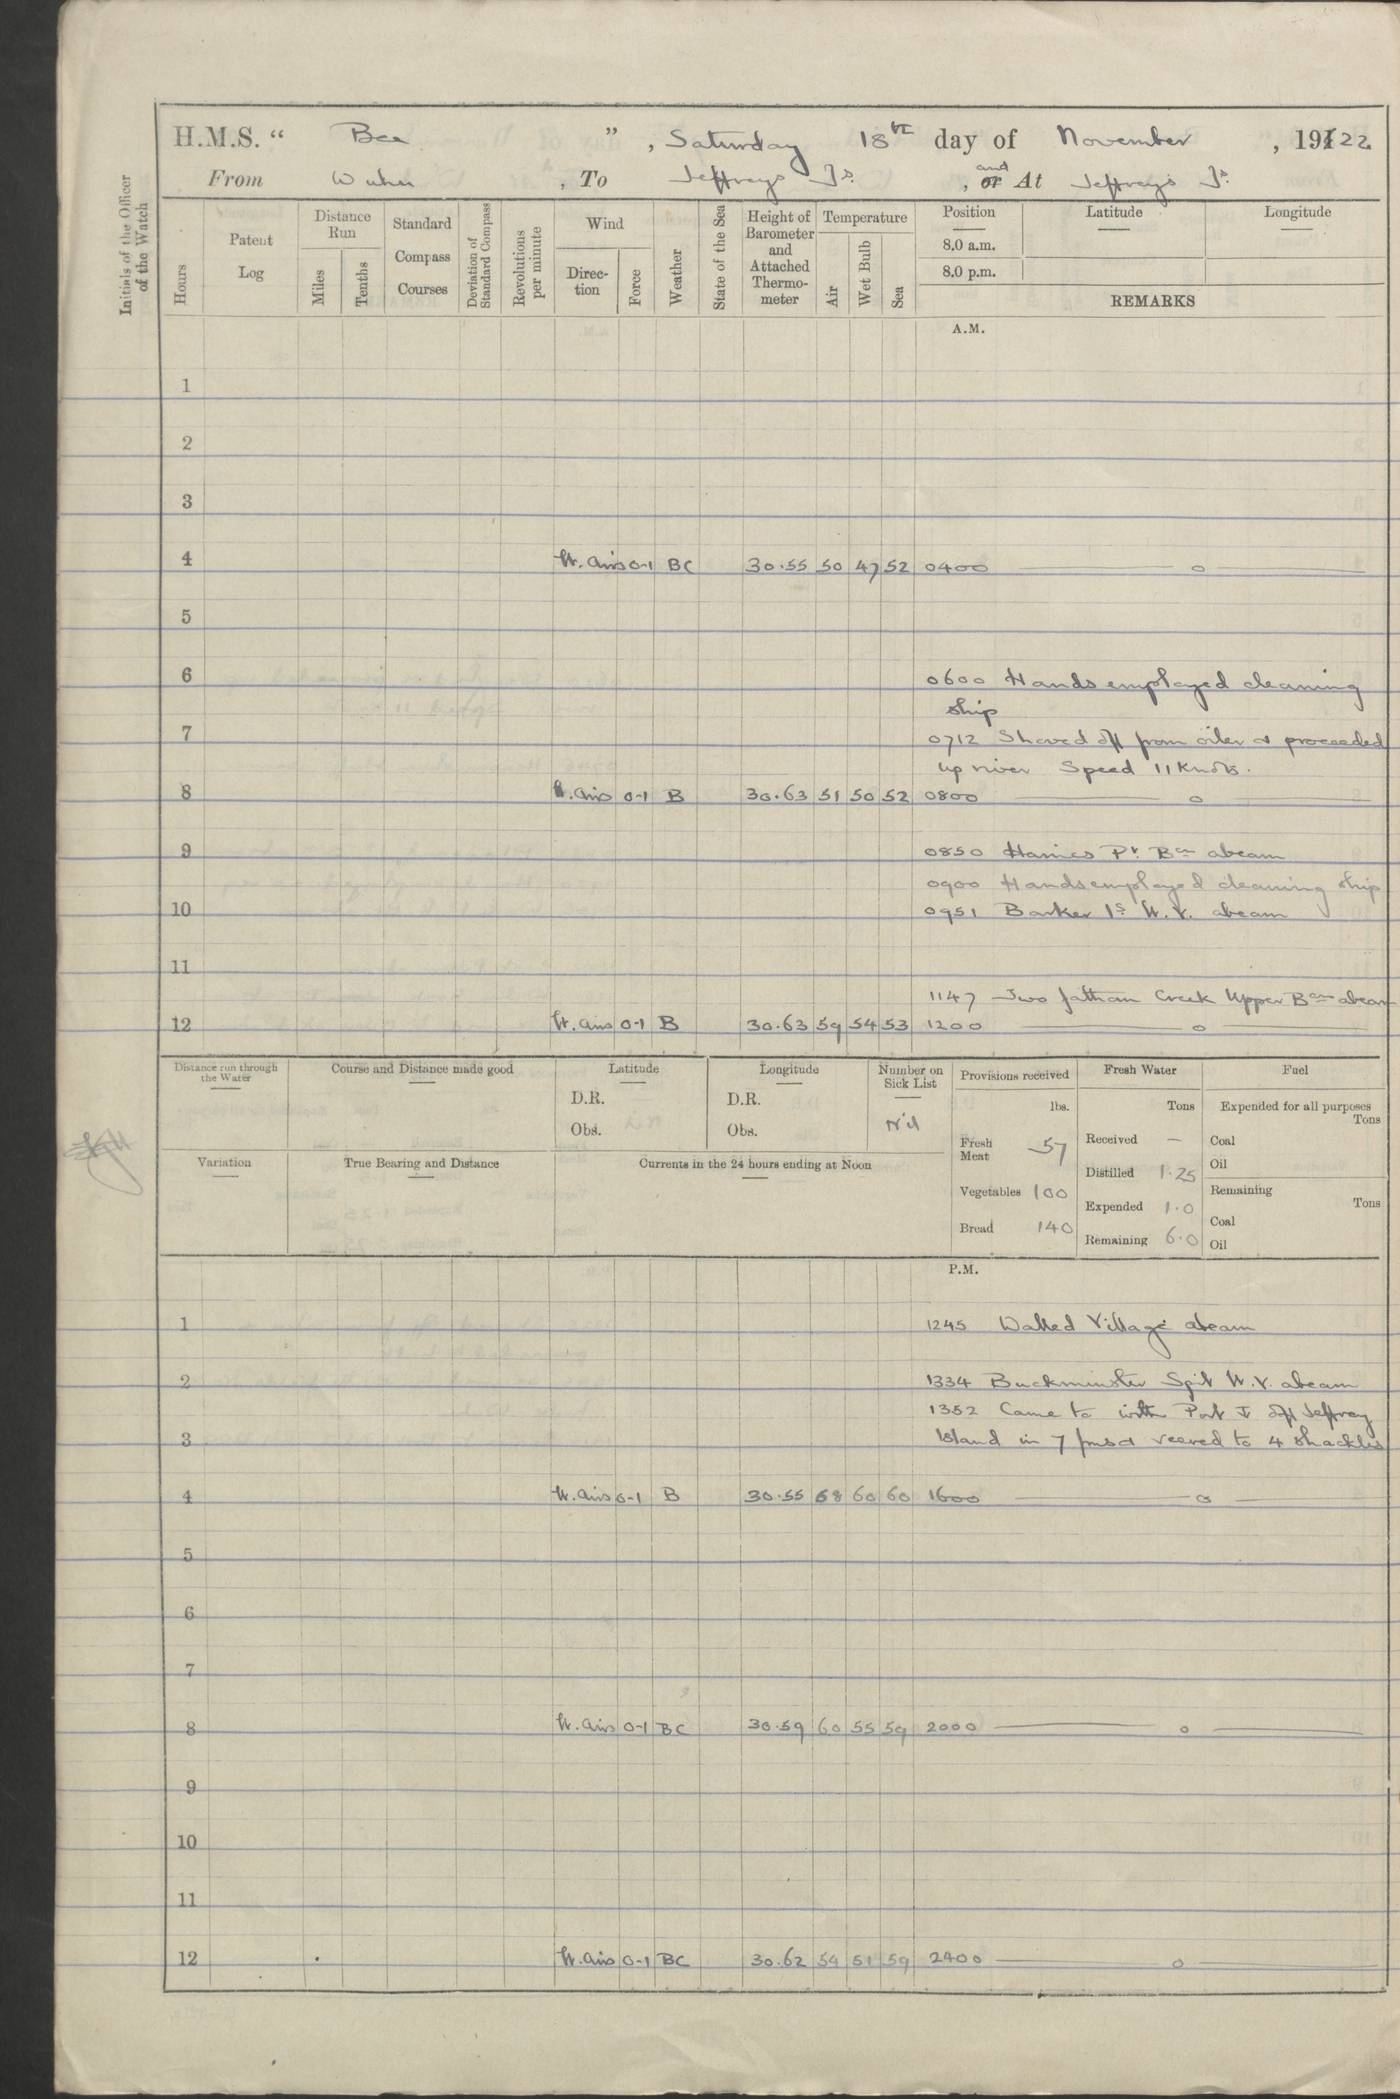 H.M.S. “ Bee ” , Saturday 18th day of November , 19122
From Wuhu , To Jeffreys Is. , and or At Jeffreys Is.
Initials of the Officer of the Watch
Hours
Patent Log
Distance Run
Miles
Tenths
Standard Compass Courses
Deviation of Standard Compass
Revolutions per minute
Wind
Direction
Force
Weather
State of the Sea
Height of Barometer and Attached Thermometer
Temperature
Air
Wet Bulb
Sea
Position Latitude Longitude
8.0 a.m.
8.0 p.m.
REMARKS
A.M.
1
2
3
4 Lt. airs 0-1 BC 30.55 50 47 52 0400 — o —
5
6 0600 Hands employed cleaning
ship
7 0712 Shoved off from oiler & proceeded
up river Speed 11 Knots.
8 Lt. airs 0-1 B 30.63 51 50 52 0800 — o —
9 0850 Haines Pt. Bn abeam
0900 Hands employed cleaning ship
10 0951 Barker Is Lt. V. abeam
11
1147 Two fathom Creek Upper Bcn abeam
12 Lt. airs 0-1 B 30.63 59 54 53 1200 — o —
Distance run through the Water
Course and Distance made good
Latitude
D.R.
Obs.
Longitude
D.R.
Obs.
Number on Sick List
Nil
Variation
True Bearing and Distance
Currents in the 24 hours ending at Noon
Provisions received
lbs.
Fresh Meat 57
Vegetables 100
Bread 140
Fresh Water
Tons
Received —
Distilled 1.25
Expended 1.0
Remaining 6.0
Fuel
Expended for all purposes
Tons
Coal
Oil
Remaining
Tons
Coal
Oil
P.M.
1 1245 Walled Village abeam
2 1334 Buckminster Spit Lt. V. abeam
1352 Came to with Port ⚓ off Jeffrey
3 Island in 7 fms & veered to 4 shackles
4 Lt. airs 0-1 B 30.55 68 60 60 1600 — o —
5
6
7
8 Lt. airs 0-1 BC 30.59 60 55 59 2000 — o —
9
10
11
12 Lt. airs 0-1 BC 30.62 54 51 59 2400 — o —